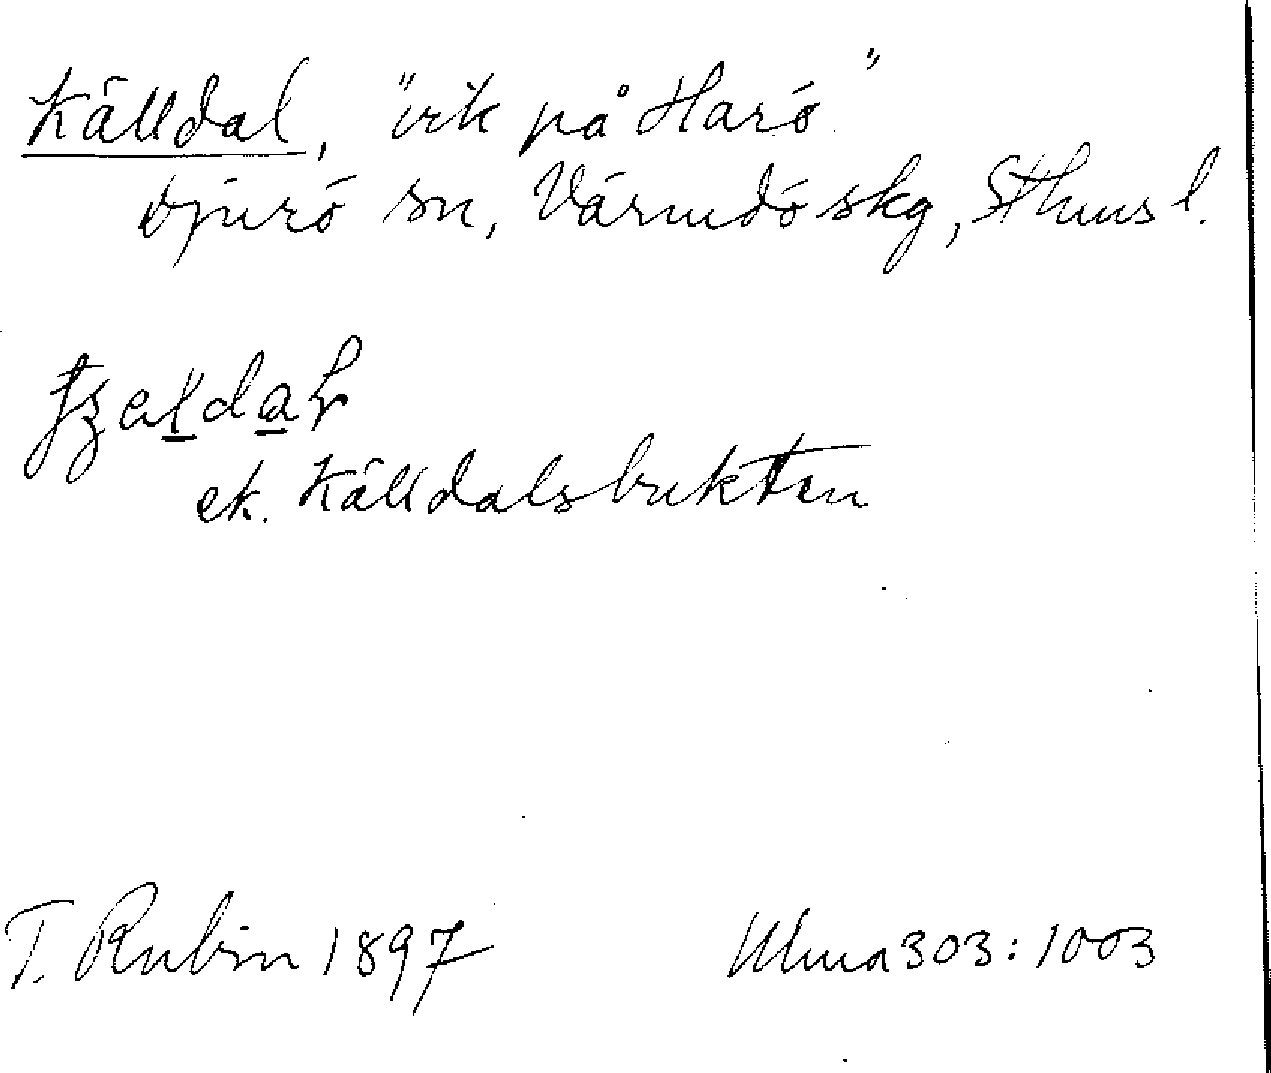 Källdal, "vik på Harö"
Djurö sn, Värmdö skg, Sthms l.
ek. Källdalsbukten
T. Rubin 1897 Ulma 303:1003